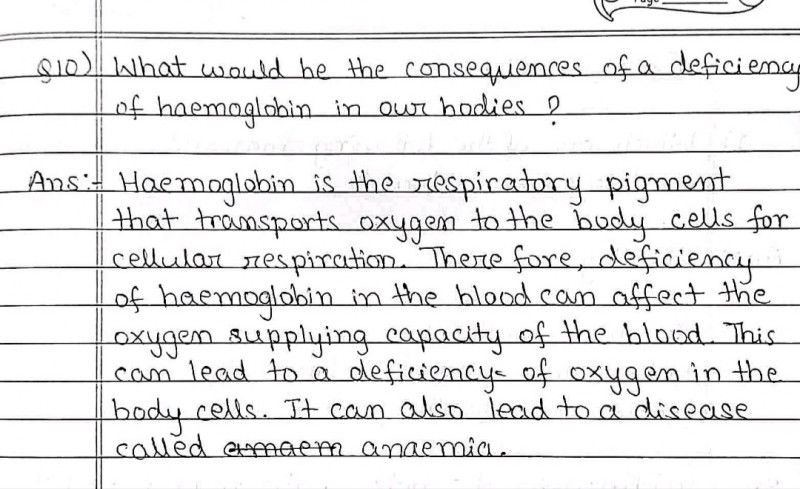 Q10) What would be the consequences of a deficiency
of haemoglobin in our bodies ?
Ans:- Haemoglobin is the respiratory pigment
that transports oxygen to the body cells for
cellular respiration. There fore, deficiency
of haemoglobin in the blood can affect the
oxygen supplying capacity of the blood. This
can lead to a deficiency of oxygen in the
body cells. It can also lead to a disease
called anaemia.